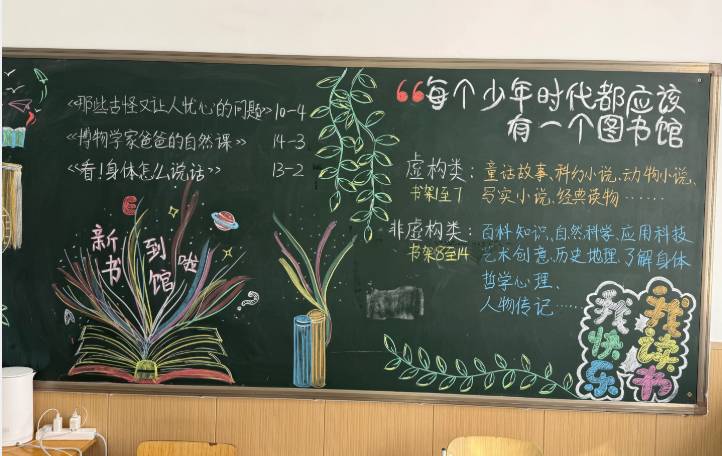 《那些古怪又让人忧心的问题》10-4
《博物学家爸爸的自然课》 14-3
《看!身体怎么说话》 13-2
新书到馆啦
“每个少年时代都应该
有一个图书馆
虚构类：童话故事、科幻小说、动物小说、
书架1至7 写实小说、经典读物……
非虚构类：百科知识、自然科学、应用科技
书架8至14 艺术创意、历史地理、了解身体
哲学心理、
人物传记……
我读书
我快乐